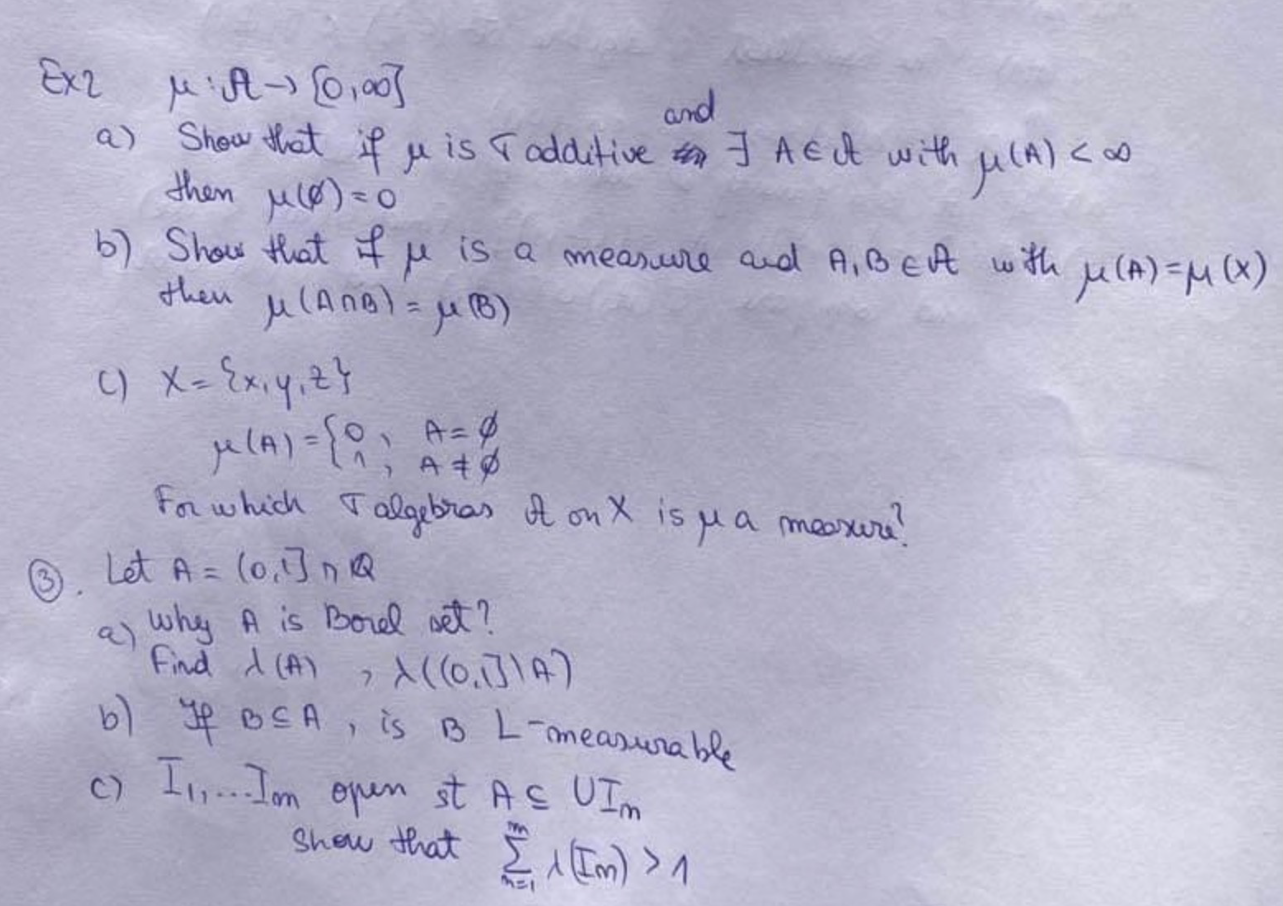 Ex2 μ: A → [0,∞]
and
a) Show that if μ is σ additive ∃ A ∈ A with μ(A) < ∞
then μ(∅) = 0
b) Show that if μ is a measure and A, B ∈ A with μ(A) = μ(X)
then μ(A∩B) = μ(B)
c) X = {x, y, z}
μ(A) = { 0, A = ∅
1, A ≠ ∅
For which σ algebras A on X is μ a measure?
③. Let A = (0,1] ∩ ℚ
a) Why A is Borel set?
Find λ(A) , λ((0,1] \ A)
b) If B ⊆ A, is B L-measurable
c) I₁, ... Im open st A ⊆ ∪ In
Show that ∑_{n=1}^{m} λ(In) > 1